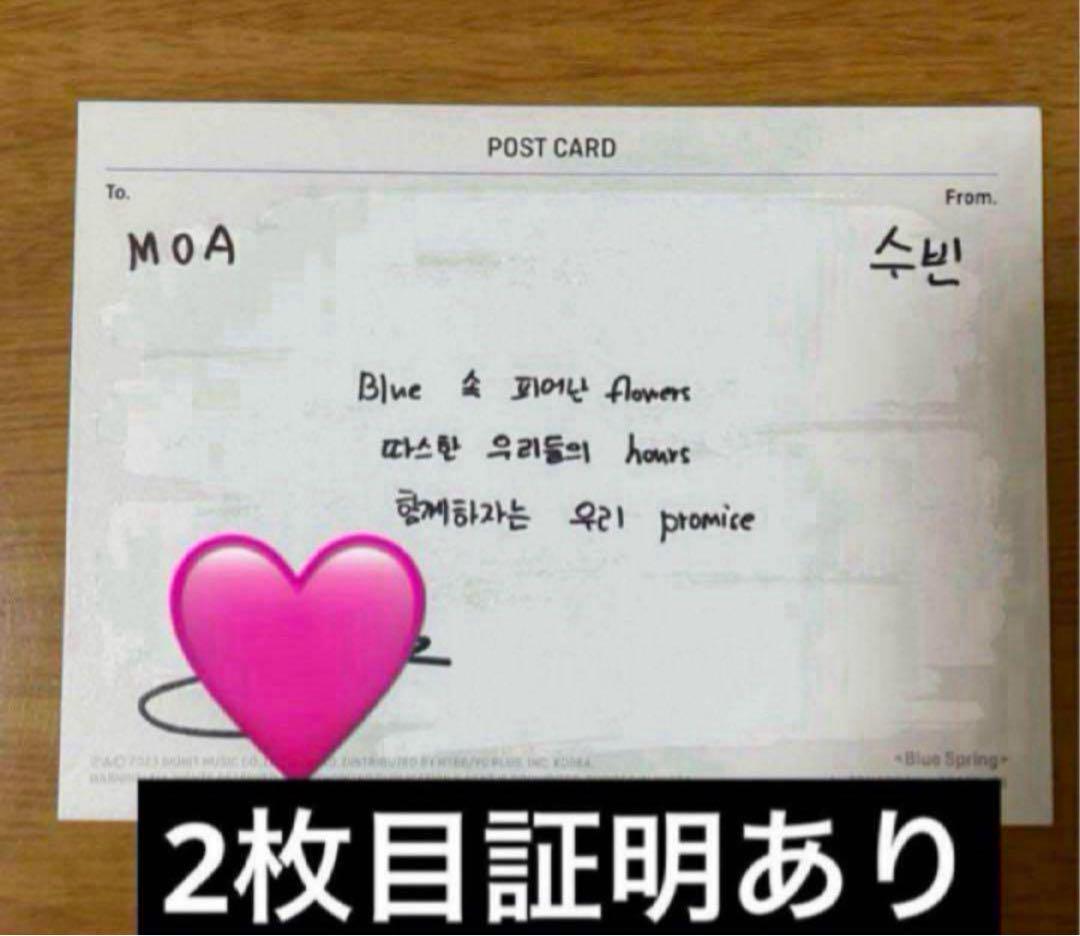 POST CARD
To.
From.
MOA
수빈
Blue 속 피어난 flowers
따스한 우리들의 hours
함께하자는 우리 promise
<Blue Spring>
2枚目証明あり